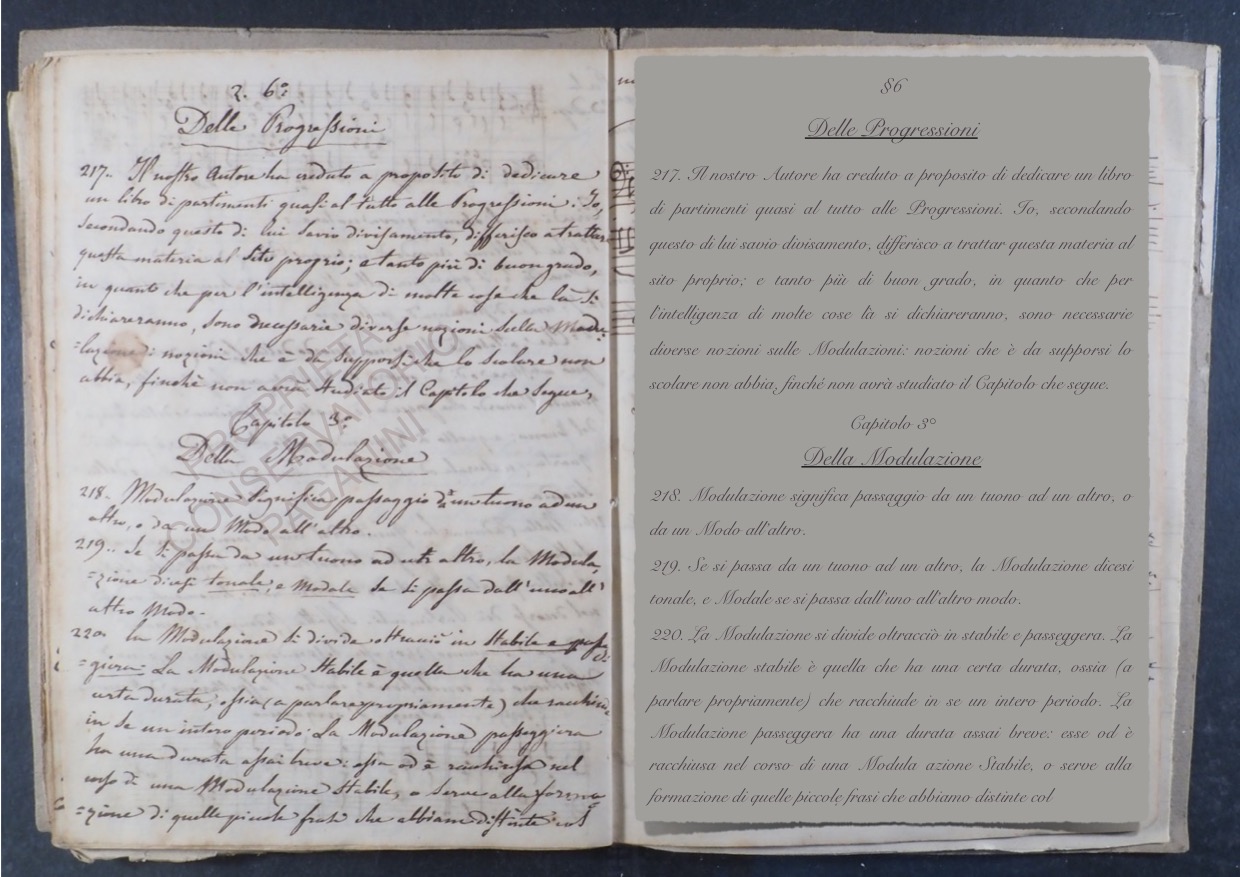 2. 6°
Delle Progressioni
217. Il nostro Autore ha creduto a proposito di dedicare
un libro di partimenti quasi al tutto alle Progressioni. Io,
secondando questo di lui savio divisamento, differisco a trattar
questa materia al sito proprio; e tanto più di buon grado,
in quanto che per l'intelligenza di molte cose che là si
dichiareranno, sono necessarie diverse nozioni sulla Modu-
=lazione: nozioni che è da supporsi che lo scolare non
abbia, finchè non avrà studiato il Capitolo che segue,
Capitolo 3°
Della Modulazione
218. Modulazione significa passaggio da un tuono ad un
altro, o da un Modo all'altro.
219. Se si passa da un tuono ad un altro, la Modula,
=zione dicesi tonale, e Modale se si passa dall'uno all'
altro Modo.
220. La Modulazione si divide oltracciò in Stabile e passeg-
=giera. La Modulazione Stabile è quella che ha una
certa durata, ossia (a parlare propriamente) che racchiude
in se un intero periodo. La Modulazione passeggiera
ha una durata assai breve: essa od è racchiusa nel
corso di una Modulazione Stabile, o serve alla forma
=zione di quelle piccole frasi che abbiam distinte col
PROPRIETÀ
CONSERVATORIO
PAGANINI
§6
Delle Progressioni
217. Il nostro Autore ha creduto a proposito di dedicare un libro
di partimenti quasi al tutto alle Progressioni. Io, secondando
questo di lui savio divisamento, differisco a trattar questa materia al
sito proprio; e tanto più di buon grado, in quanto che per
l'intelligenza di molte cose là si dichiareranno, sono necessarie
diverse nozioni sulle Modulazioni: nozioni che è da supporsi lo
scolare non abbia, finché non avrà studiato il Capitolo che segue.
Capitolo 3°
Della Modulazione
218. Modulazione significa passaggio da un tuono ad un altro, o
da un Modo all'altro.
219. Se si passa da un tuono ad un altro, la Modulazione dicesi
tonale, e Modale se si passa dall'uno all'altro modo.
220. La Modulazione si divide oltracciò in stabile e passeggera. La
Modulazione stabile è quella che ha una certa durata, ossia (a
parlare propriamente) che racchiude in se un intero periodo. La
Modulazione passeggera ha una durata assai breve: esse od è
racchiusa nel corso di una Modula azione Stabile, o serve alla
formazione di quelle piccole frasi che abbiamo distinte col